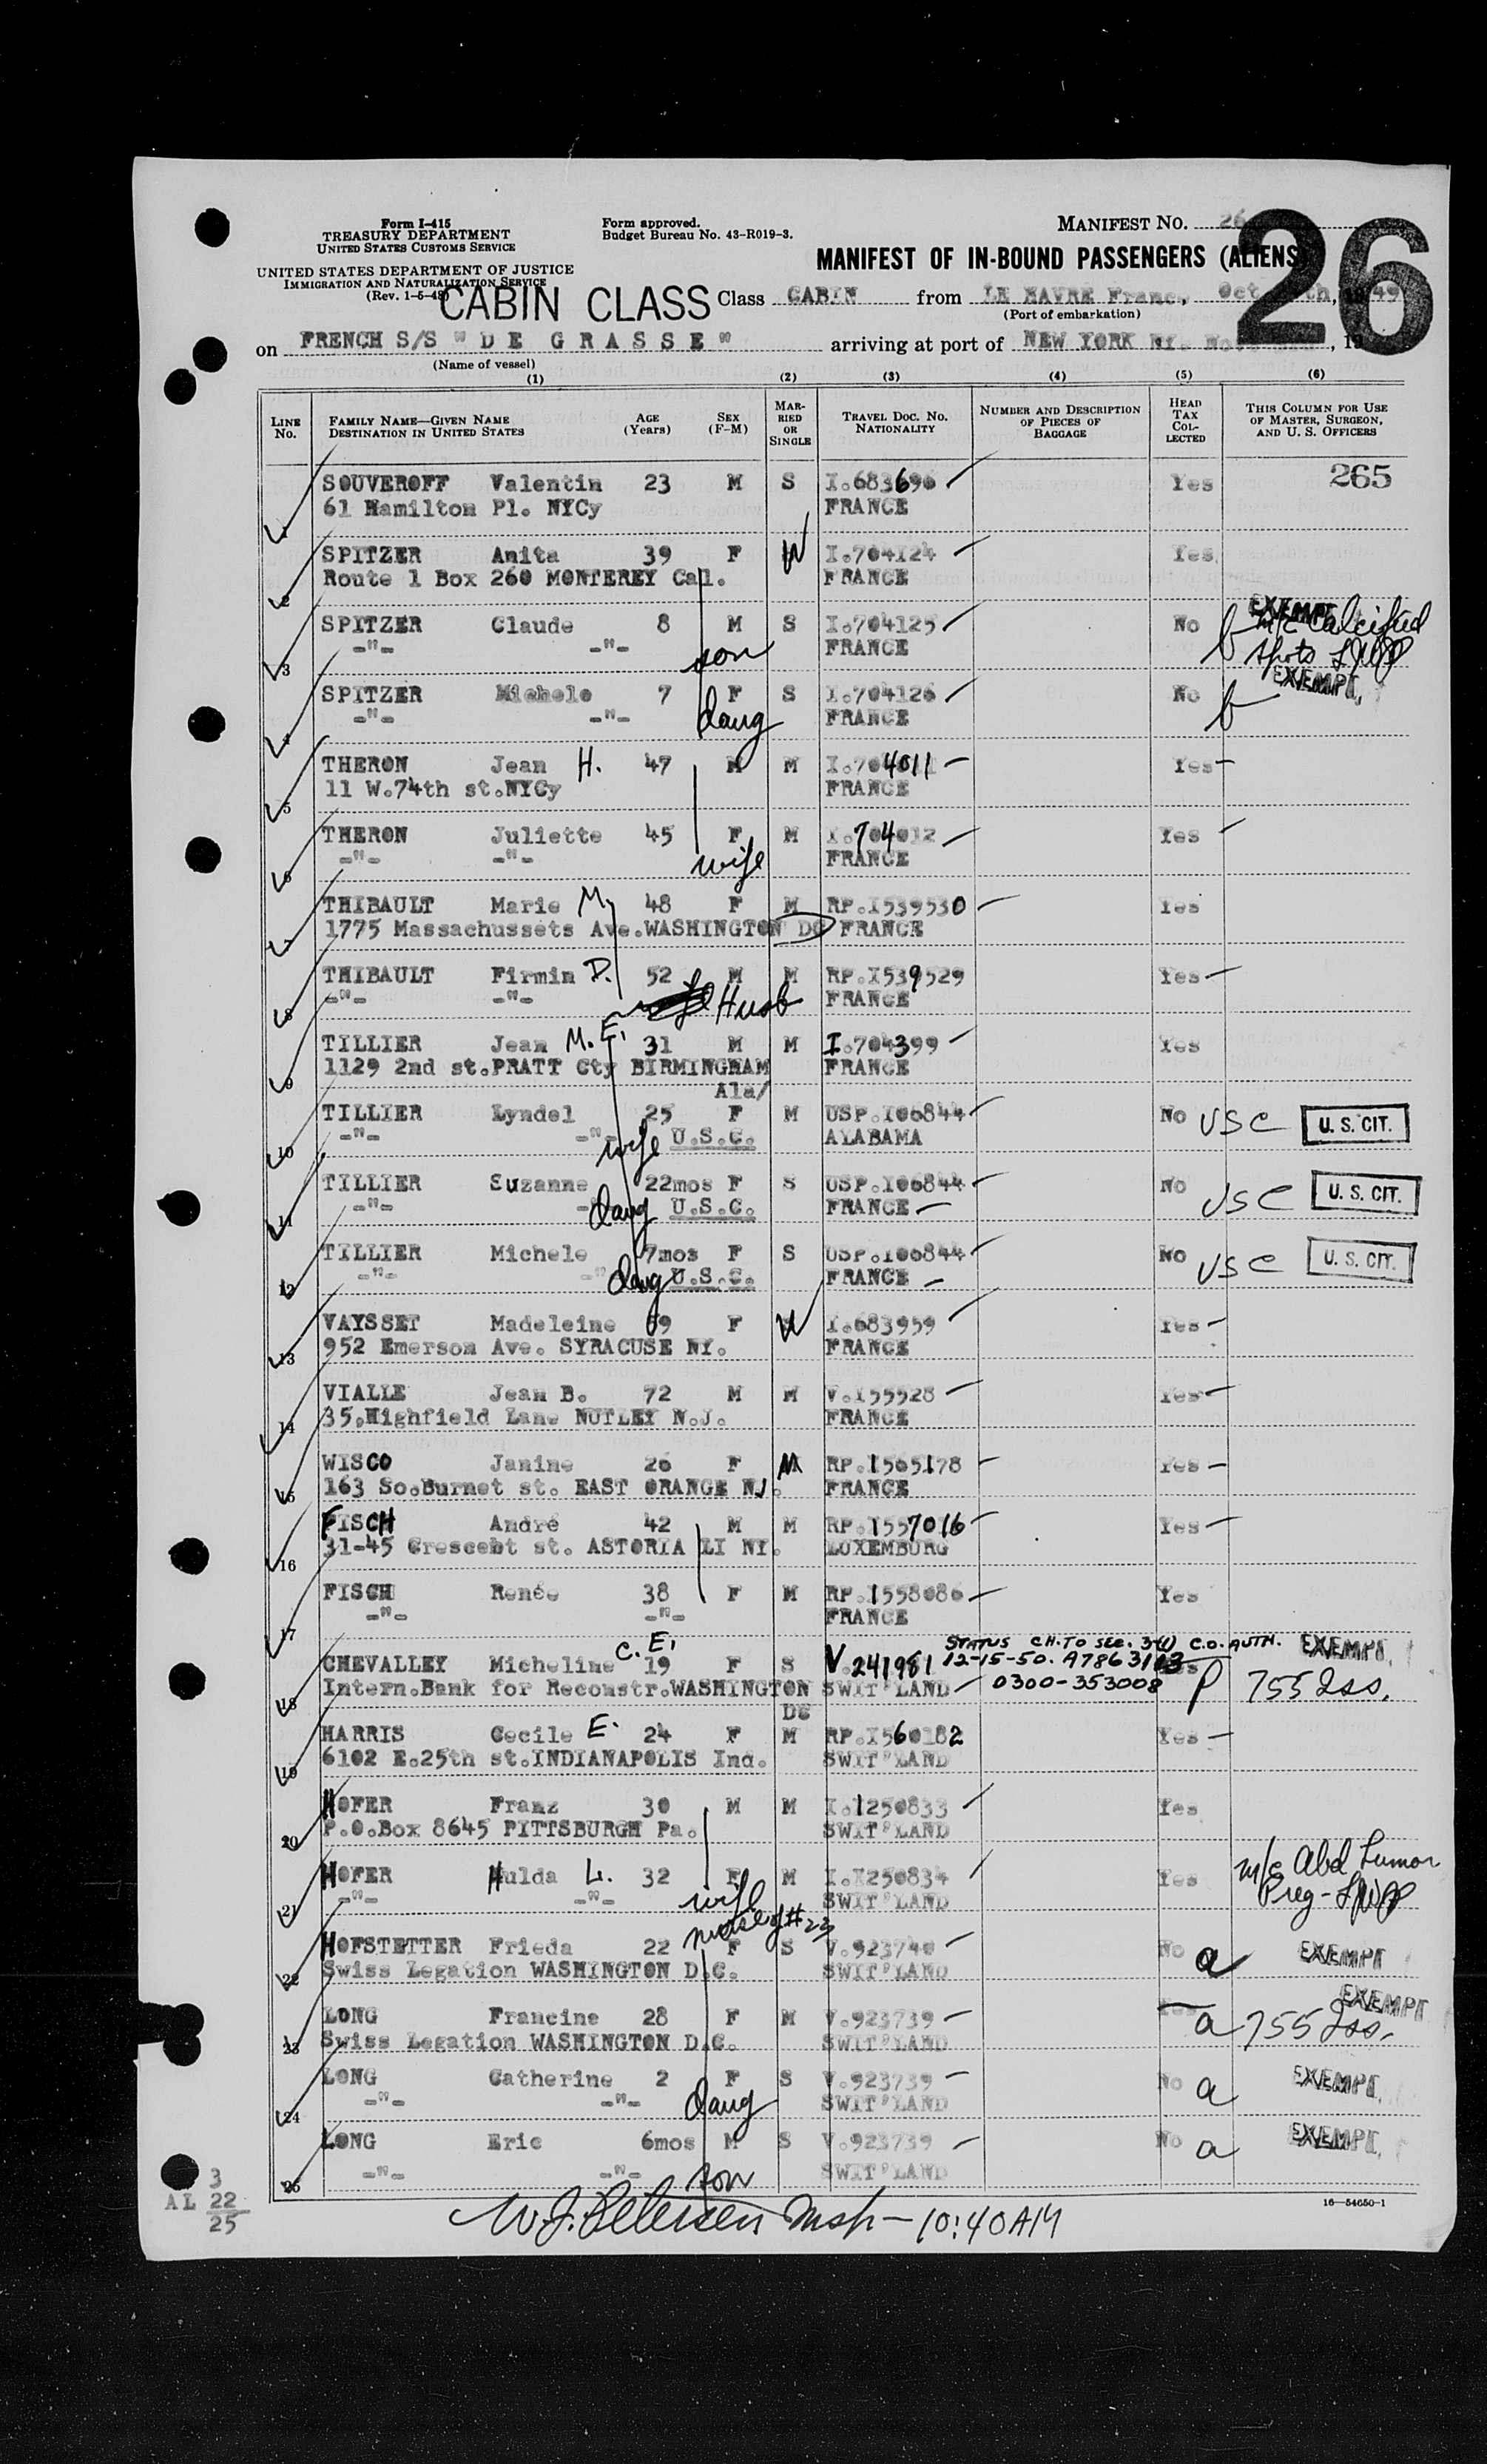 Form I-415
TREASURY DEPARTMENT
UNITED STATES CUSTOMS SERVICE
UNITED STATES DEPARTMENT OF JUSTICE
IMMIGRATION AND NATURALIZATION SERVICE
(Rev. 1-5-48)
Form approved.
Budget Bureau No. 43-R019-3.
MANIFEST NO. 26
26
MANIFEST OF IN-BOUND PASSENGERS (ALIENS)
CABIN CLASS Class CABIN from LE HAVRE Franc, Oct th, 1949
(Port of embarkation)
on FRENCH S/S "DE GRASSE" arriving at port of NEW YORK NY. , 19
(Name of vessel)
(1) (2) (3) (4) (5) (6)
LINE No. FAMILY NAME—GIVEN NAME DESTINATION IN UNITED STATES AGE (Years) SEX (F-M) MARRIED OR SINGLE TRAVEL DOC. NO. NATIONALITY NUMBER AND DESCRIPTION OF PIECES OF BAGGAGE HEAD TAX COLLECTED THIS COLUMN FOR USE OF MASTER, SURGEON, AND U. S. OFFICERS
SOUVEROFF Valentin 23 M S I.683690 Yes 265
1 61 Hamilton Pl. NYCy FRANCE
SPITZER Anita 39 F W I.704124 Yes
2 Route 1 Box 260 MONTEREY Cal. FRANCE
SPITZER Claude 8 M S I.704125 No EXEMPT b m/c Calcified
3 -"- -"- son FRANCE spots
SPITZER Michele 7 F S I.704126 No EXEMPT, b
4 -"- -"- daug FRANCE
THERON Jean H. 47 M M I.704011 Yes
5 11 W.74th st.NYCy FRANCE
THERON Juliette 45 F M I.704012 Yes
6 -"- -"- wife FRANCE
THIBAULT Marie M. 48 F M RP.I539530 Yes
7 1775 Massachussets Ave.WASHINGTON DC FRANCE
THIBAULT Firmin D. 52 M M RP.I539529 Yes
8 -"- -"- Husb FRANCE
TILLIER Jean M.E. 31 M M I.704399 Yes
9 1129 2nd st.PRATT Cty BIRMINGHAM FRANCE
Ala/
TILLIER Lyndel 25 F M USP.I06844 No USC U. S. CIT.
10 -"- -"- wife U.S.C. ALABAMA
TILLIER Suzanne 22mos F S USP.I06844 No USC U. S. CIT.
11 -"- daug U.S.C. FRANCE
TILLIER Michele 7mos F S USP.I06844 No USC U. S. CIT.
12 -"- -" daug U.S.C. FRANCE
VAYSSET Madeleine 69 F W I.683959 Yes
13 952 Emerson Ave. SYRACUSE NY. FRANCE
VIALLE Jean B. 72 M M V.I55928 Yes
14 35,Highfield Lane NUTLEY N.J. FRANCE
WISCO Janine 26 F M RP.1565178 Yes
15 163 So.Burnet st. EAST ORANGE NJ. FRANCE
FISCH André 42 M M RP.1557016 Yes
16 31-45 Crescebt st. ASTORIA LI NY. LUXEMBURG
FISCH Renée 38 F M RP.1558086 Yes
17 -"- -"- FRANCE
STATUS CH.TO SEC. 3(1) C.O. AUTH. EXEMPT,
CHEVALLEY Micheline C. E. 19 F S V.241981 12-15-50. A7863113 P 755 Iss.
18 Intern.Bank for Reconstr.WASHINGTON SWIT'LAND 0300-353008
DC
HARRIS Cecile E. 24 F M RP.I560182 Yes
19 6102 E.25th st.INDIANAPOLIS Ind. SWIT'LAND
HOFER Franz 30 M M I.1250833 Yes
20 P.O.Box 8645 PITTSBURGH Pa. SWIT'LAND
HOFER Hulda L. 32 F M I.I250834 Yes m/c Abd Tumor
21 -"- -"- wife SWIT'LAND Preg-
nurse of #23
HOFSTETTER Frieda 22 F S V.923740 No a EXEMPT
22 Swiss Legation WASHINGTON D.C. SWIT'LAND
LONG Francine 28 F M V.923739 Yes a 755 Iss. EXEMPT
23 Swiss Legation WASHINGTON D.C. SWIT'LAND
LONG Catherine 2 F S V.923739 No a EXEMPT,
24 -"- -"- daug SWIT'LAND
LONG Eric 6mos M S V.923739 No a EXEMPT,
25 -"- -"- son SWIT'LAND
3
AL 22
25
W.J. Petersen Insp- 10:40AM
16—54650-1